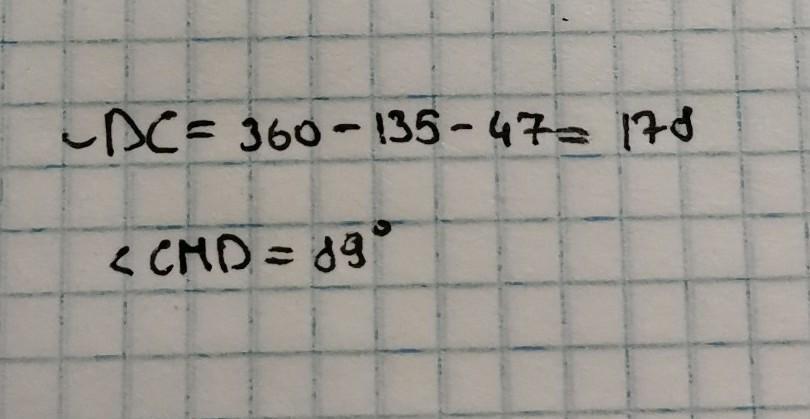 ◡DC = 360 - 135 - 47 = 178
< CMD = 89°